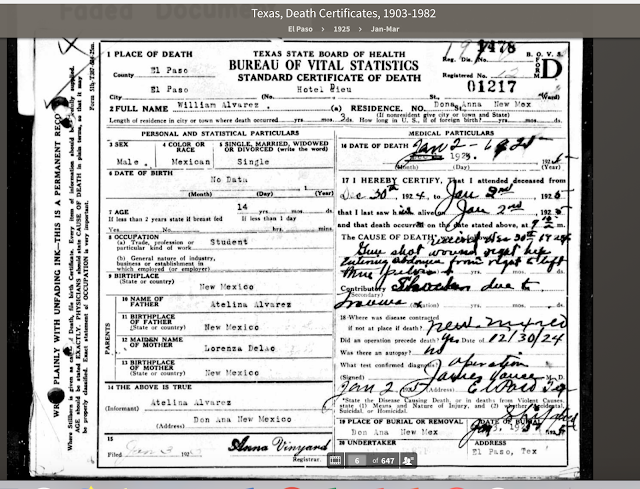 Texas, Death Certificates, 1903-1982
El Paso > 1925 > Jan-Mar
1478
1 PLACE OF DEATH
TEXAS STATE BOARD OF HEALTH
BUREAU OF VITAL STATISTICS
STANDARD CERTIFICATE OF DEATH
B. O. V. S.
FORM D
Reg. Dis. No.
Registered No.
01217
County El Paso
El Paso
City (No. Hotel Dieu Ward)
2 FULL NAME William Alvarez (a) RESIDENCE. NO. Dona Anna New Mex
(If nonresident give city or town and State)
Length of residence in city or town where death occurred yrs. mos. 3 ds. How long in U. S., if of foreign birth?
PERSONAL AND STATISTICAL PARTICULARS
3 SEX
4 COLOR OR RACE
5 SINGLE, MARRIED, WIDOWED OR DIVORCED (write the word)
Male. Mexican Single
6 DATE OF BIRTH
No Data
(Month) (Day) (Year)
7 AGE 14 yrs. mos. ds.
If less than 2 years state if breast fed If less than 1 day
Yes No hrs. mins.
8 OCCUPATION
(a) Trade, profession or particular kind of work Student
(b) General nature of industry, business or establishment in which employed (or employer)
9 BIRTHPLACE
(State or country) New Mexico
PARENTS
10 NAME OF FATHER Atelina Alvarez
11 BIRTHPLACE OF FATHER
(State or country) New Mexico
12 MAIDEN NAME OF MOTHER Lorenza Delao
13 BIRTHPLACE OF MOTHER
(State or country) New Mexico
14 THE ABOVE IS TRUE
(Informant) Atelina Alvarez
(Address) Don Ana New Mexico
15
Filed Jan 3 192
Anna Vinyard
Registrar.
MEDICAL PARTICULARS
16 DATE OF DEATH Jan 2 - 1925
(Month) (Day) (Year)
17 I HEREBY CERTIFY, That I attended deceased from
Dec 30th, 1924, to Jan 2nd, 1925
that I last saw h alive on Jan 2nd 1925
and that death occurred on the date stated above, at m.
The CAUSE OF DEATH Dec 30th 1924
Gun shot wound
Contributory due to
(Secondary)
18 Where was disease contracted
if not at place of death? New Mexico
Did an operation precede death? Yes Date of 12/30/24
Was there an autopsy? No
What test confirmed diagnosis? Operation
(Signed) James Vance M. D.
Jan 2 (Address) El Paso Tex
*State the Disease Causing Death, or in deaths from Violent Causes, state (1) Means and Nature of Injury, and (2) whether Accidental, Suicidal, or Homicidal.
19 PLACE OF BURIAL OR REMOVAL DATE OF BURIAL
Don Ana New Mex Jan 3, 1925
20 UNDERTAKER ADDRESS
El Paso, Tex
6 OF 647
WRITE PLAINLY WITH UNFADING INK—THIS IS A PERMANENT RECO
AGE should be stated EXACTLY. PHYSICIANS should state CAUSE OF DEATH in plain terms, so that it may
be properly classified. Exact statement of OCCUPATION is very important.